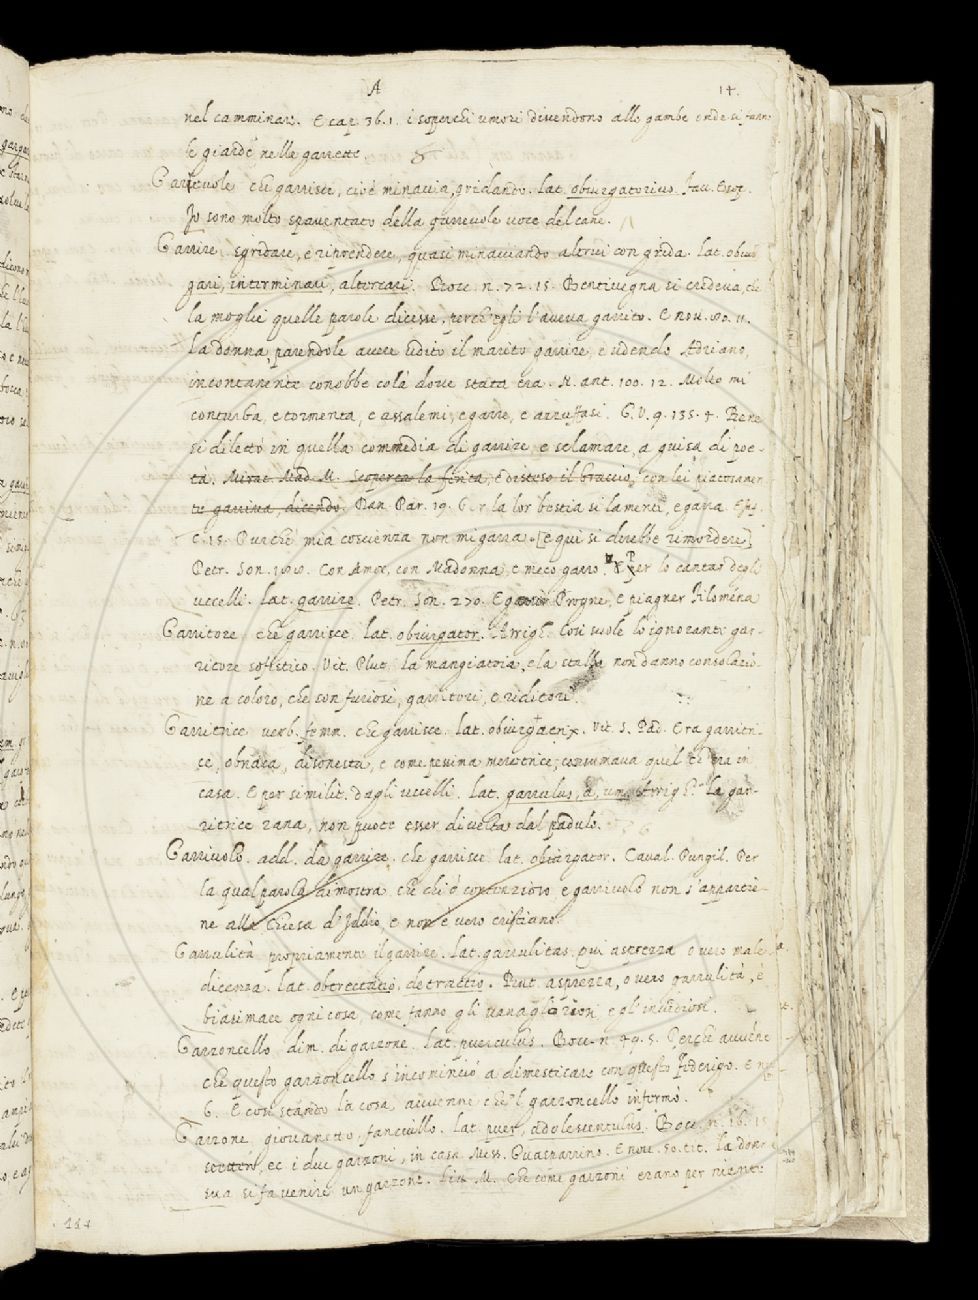 A 14.
nel camminare. E cap. 36. 1. i soperchi umori divendono alle gambe onde si fanno
le giarde nelle garrette
Garrevole che garrisce, cioè minaccia, gridando. lat. obiurgatorius. Fav. Esop.
Io sono molto spaventato della garrevole voce del cane.
Garrire sgridare, e riprendere, quasi minacciando altrui con grida. lat. obiur
gari, interminari, altercari. Bocc. n. 72. 15. Bentivegna si credeva, che
la moglie quelle parole dicesse, perch'egli l'aveva garrito. E nov. 80. 11.
La donna, parendole avere udito il marito garrire, e udendo Adriano,
incontanente conobbe colà dove stata era. N. ant. 100. 12. Molto mi
conturba, e tormenta, e assalemi, e garre, e arruffasi. G. V. 9. 135. 4. Bene
si dilettò in quella commedia di garrire, e sclamare, a guisa di poe-
ta. Mirac. Mad. M. Scoperta la finta, e disteso il braccio, con lei piatosamen-
te garriva, dicendo. Dan. Par. 19. la lor bestia si lamenti, e garra.
C. 15. Purchè mia coscienza non mi garra. [e qui si direbbe rimordere]
Petr. Son. Con Amor, con Madonna, e meco garro. Per lo cantar degli
uccelli. lat. garrire. Petr. Son. 270. E garrir Progne, e piagner Filomena
Garritore che garrisce. lat. obiurgator. Arrigh. Così suole lo ignorante gar-
ritore sofistico. Vit. Plut. la mangiatoia, e la stalla non danno consolazio-
ne a coloro, che son furiosi, garritori, e riditori.
Garritrice verb. femm. che garrisce. lat. obiurgatrix. Vit. S. Pad. Era garritri-
ce, obriaca, disonesta, e come pessima meretrice, consumava quel era in
casa. E per similit. dagli uccelli. lat. garrulus, a, um. Arrigh. La gar-
ritrice rana, non puote esser divelta dal padule.
Garrivolo. add. da garrire. che garrisce lat. obiurgator. Caval. Pungil. Per
la qual parola dimostra che chi è contenzioso, e garrivolo non s'appartie-
ne alla Chiesa d'Iddio, e non è vero cristiano.
Garrulità propriamente il garrire. lat. garrulitas. qui asprezza o vero male-
dicenza. lat. obtrectatio. detractio. asprezza, o vero garrulità, è
biasimare ogni cosa, come fanno gli vanagloriosi, e gl'invidiosi.
Garzoncello dim. di garzone. lat. puerculus. Bocc. n. 49. 5. Perchè avvene
che questo garzoncello s'incominciò a dimesticare con questo Federigo. E n
6. E così stando la cosa, avvenne che'l garzoncello infermò.
Garzone giovanetto, fanciullo. lat. puer, adolescentulus. Bocc. n. 16. 15
ec. i due garzoni, in casa Mess. Guasparrino. E nov. 50. tit. la donna
sua si fa venire un garzone. Liv. M. Che come garzoni erano per niente
114